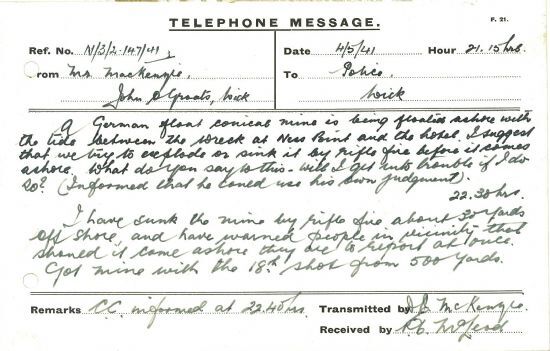 TELEPHONE MESSAGE.
F. 21.
Ref. No. N/3/2-147/41
Date 4/5/41 Hour 21.15 hrs.
From Mr. MacKenzie, To Police,
John O'Groats, Wick Wick
A German float conical mine is being floated ashore with
the tide between the wreck at Ness Point and the hotel. I suggest
that we try to explode or sink it by rifle fire before it comes
ashore. What do you say to this. Will I get into trouble if I do
so? (Informed that he could use his own judgment).
22.30 hrs.
I have sunk the mine by rifle fire about 30 yards
off shore and have warned people in vicinity that
should it come ashore they are to report at once.
Got mine with the 18th shot from 500 yards.
Remarks C.C. informed at 22.40 hrs. Transmitted by McKenzie.
Received by P.C. McLeod